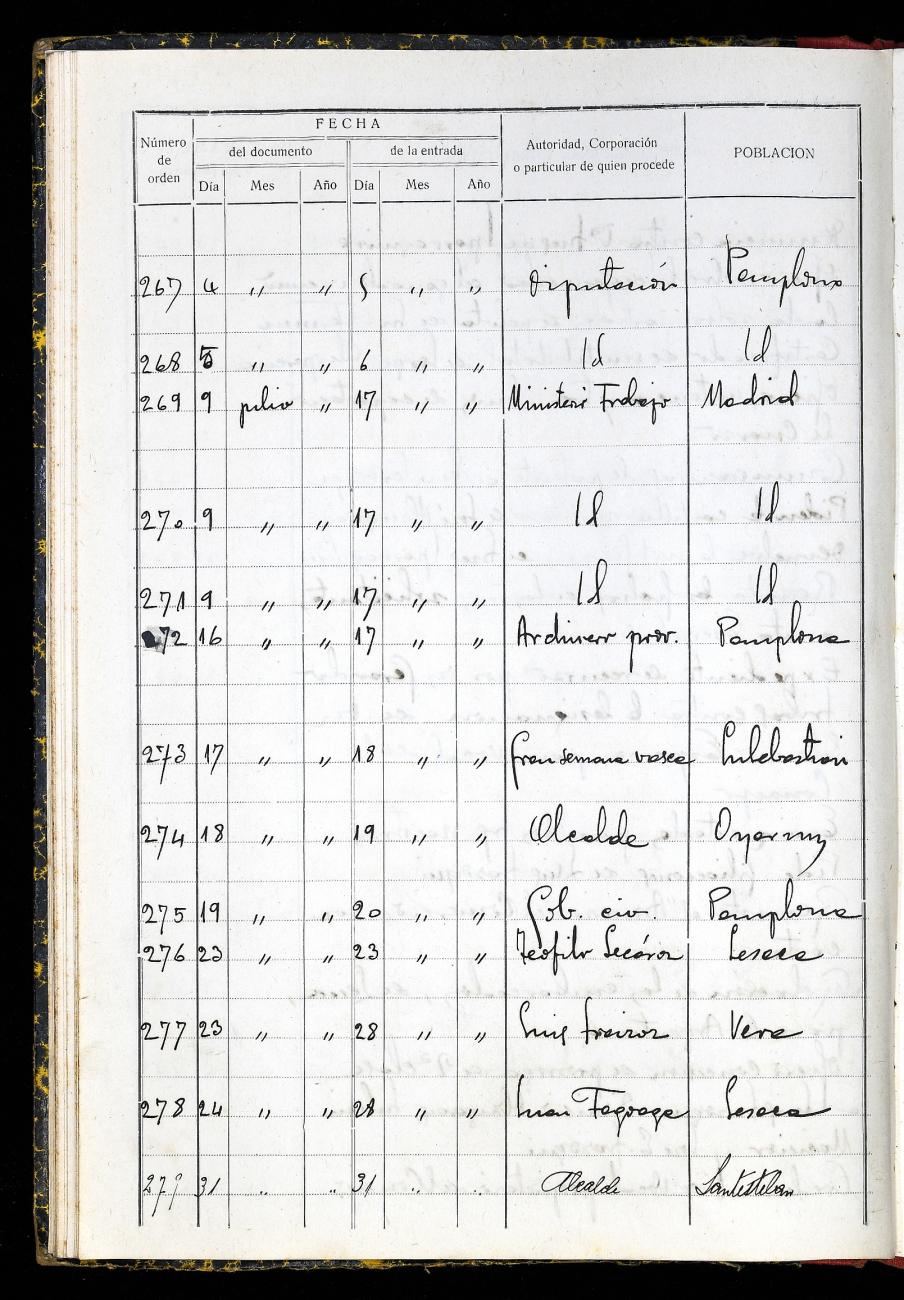 Número de orden
FECHA
del documento
de la entrada
Día Mes Año Día Mes Año
Autoridad, Corporación
o particular de quien procede
POBLACION
267 4 " " 5 " " Diputación Pamplona
268 5 " " 6 " " Id Id
269 9 julio " 17 " " Ministerio Trabajo Madrid
270 9 " " 17 " " Id Id
271 9 " " 17 " " Id Id
272 16 " " 17 " " Archivero prov. Pamplona
273 17 " " 18 " " Gran semana vasca
274 18 " " 19 " " Alcalde
275 19 " " 20 " " Gob. civ. Pamplona
276 23 " " 23 " " Teofilo Lesaca
277 23 " " 28 " " Luis Vera
278 24 " " 28 " " Juan Fagoaga Lesaca
279 31 " " 31 " " Alcalde Santesteban